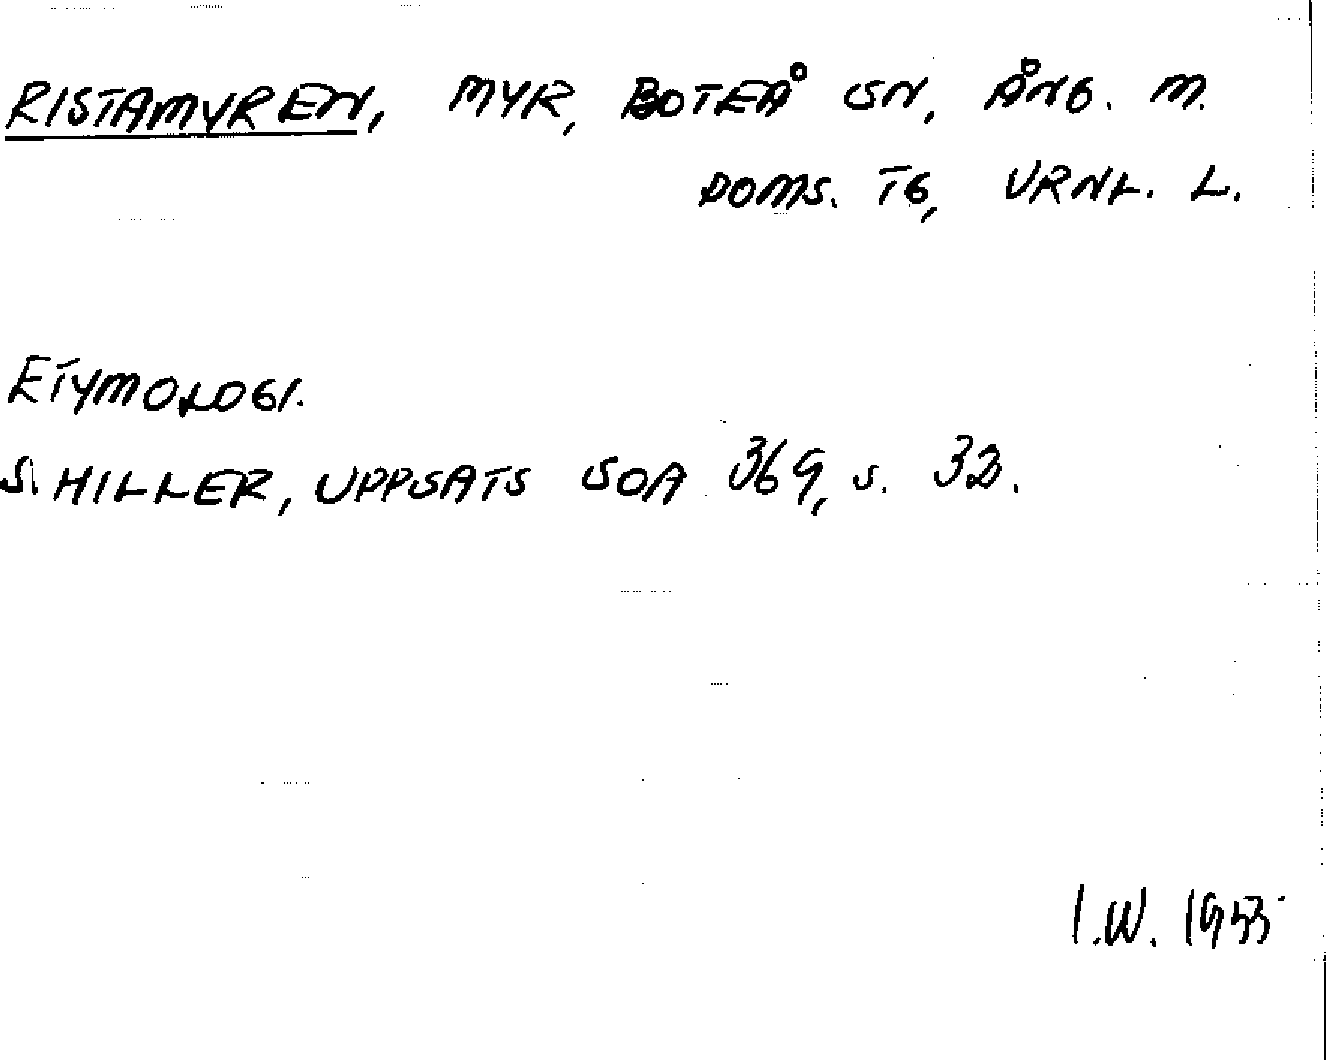 RISTAMYREN, MYR, BOTEÅ SN, ÅNG. M.
DOMS. TG, VRNL. L.
ETYMOLOGI.
S. HILLER, UPPSATS SOA 369, S. 32.
I.W. 1953